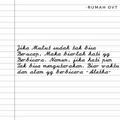 RUMAH OVT
Jika Mulut sudah tak bisa
Berucap. Maka biarlah hati yg
Berbicara. Namun, jika hati pun
Tak bisa mengutarakan. Biar waktu
dan alam yg berbicara